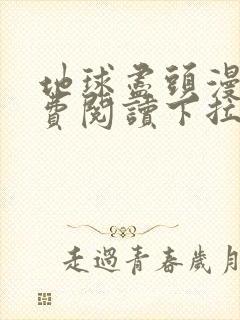 地球盡頭漫
費閱讀下拉
走過青春歲月